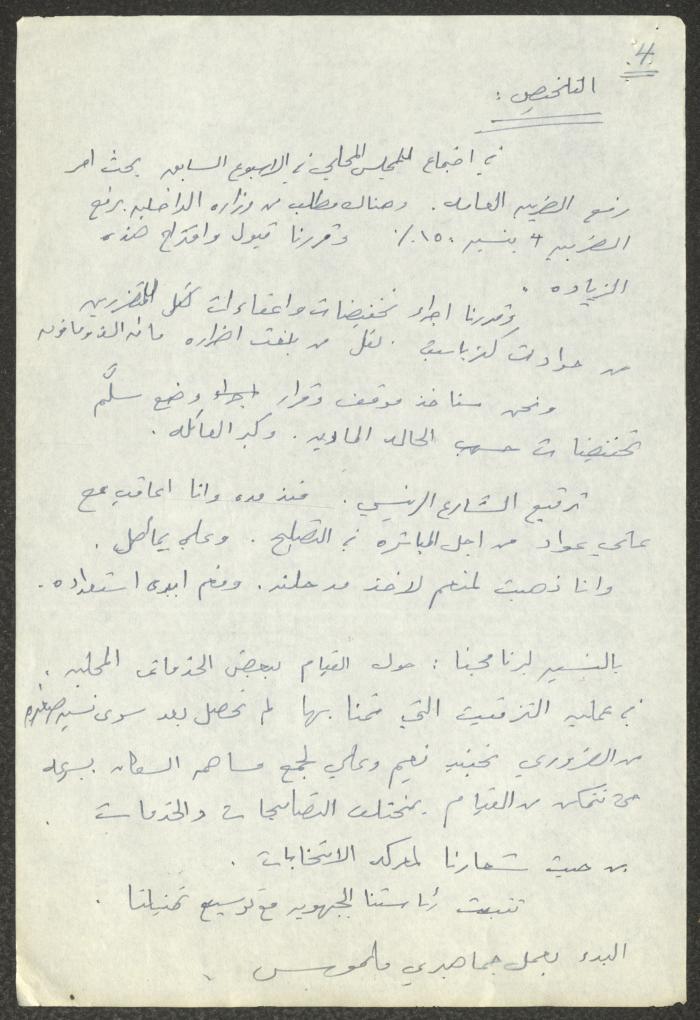 4
التلخيص :
في اجتماع المجلس المحلي في الاسبوع السابق بحث امر
رفع الضريبه العامه. وهناك مطلب من وزاره الداخليه برفع
الضريبه بنسبه ١٥٠٪ وقررنا قبول واقتراح هذه
الزياده .
وقررنا اجراء تخفيضات واعفاءات لكل المتضررين
من حوادث . لكل من بلغت اضراره مائه الف وما فوق
ونحن سناخذ موقف وقرار وضع سلّم
تخفيضات حسب الحاله الماديه . وكبر العائله .
ترقيع الشارع الرئيسي . منذ مده وانا اعاقب مع
علي عواد من اجل المباشره في التصليح . وعلي يماطل .
وانا ذهبت لمنعم لاخذ مدحلته . ومنعم ابدى استعداده .
بالنسبه لبرنامجنا : حول القيام ببعض الخدمات المحليه .
في عمليه التزفيت التي قمنا بها لم نحصل بعد سوى نسبه صغيره
من الضروري تجنيد نعيم وعلي لجمع مساهمه السكان بسرعه
حتى نتمكن من القيام بمختلف التصليحات والخدمات .
من حيث شعارنا لمعركه الانتخابات .
تثبيت رئاستنا الجبهويه مع توسيع تمثيلنا .
البدء بعمل جماهيري ملموس .